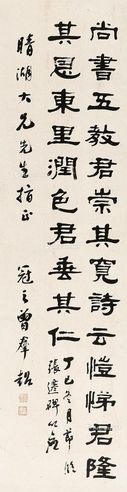 尚書五教君崇其寬詩云愷悌君隆
其恩東里潤色君垂其仁
丁巳冬月節臨
張遷碑以應
晴湖大兄先生指正
冠之曾羣超